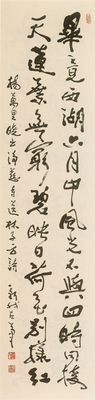 畢竟西湖六月中風光不與四時同接
天蓮葉無窮碧映日荷花別樣紅
楊萬里曉出淨慈寺送林子方詩